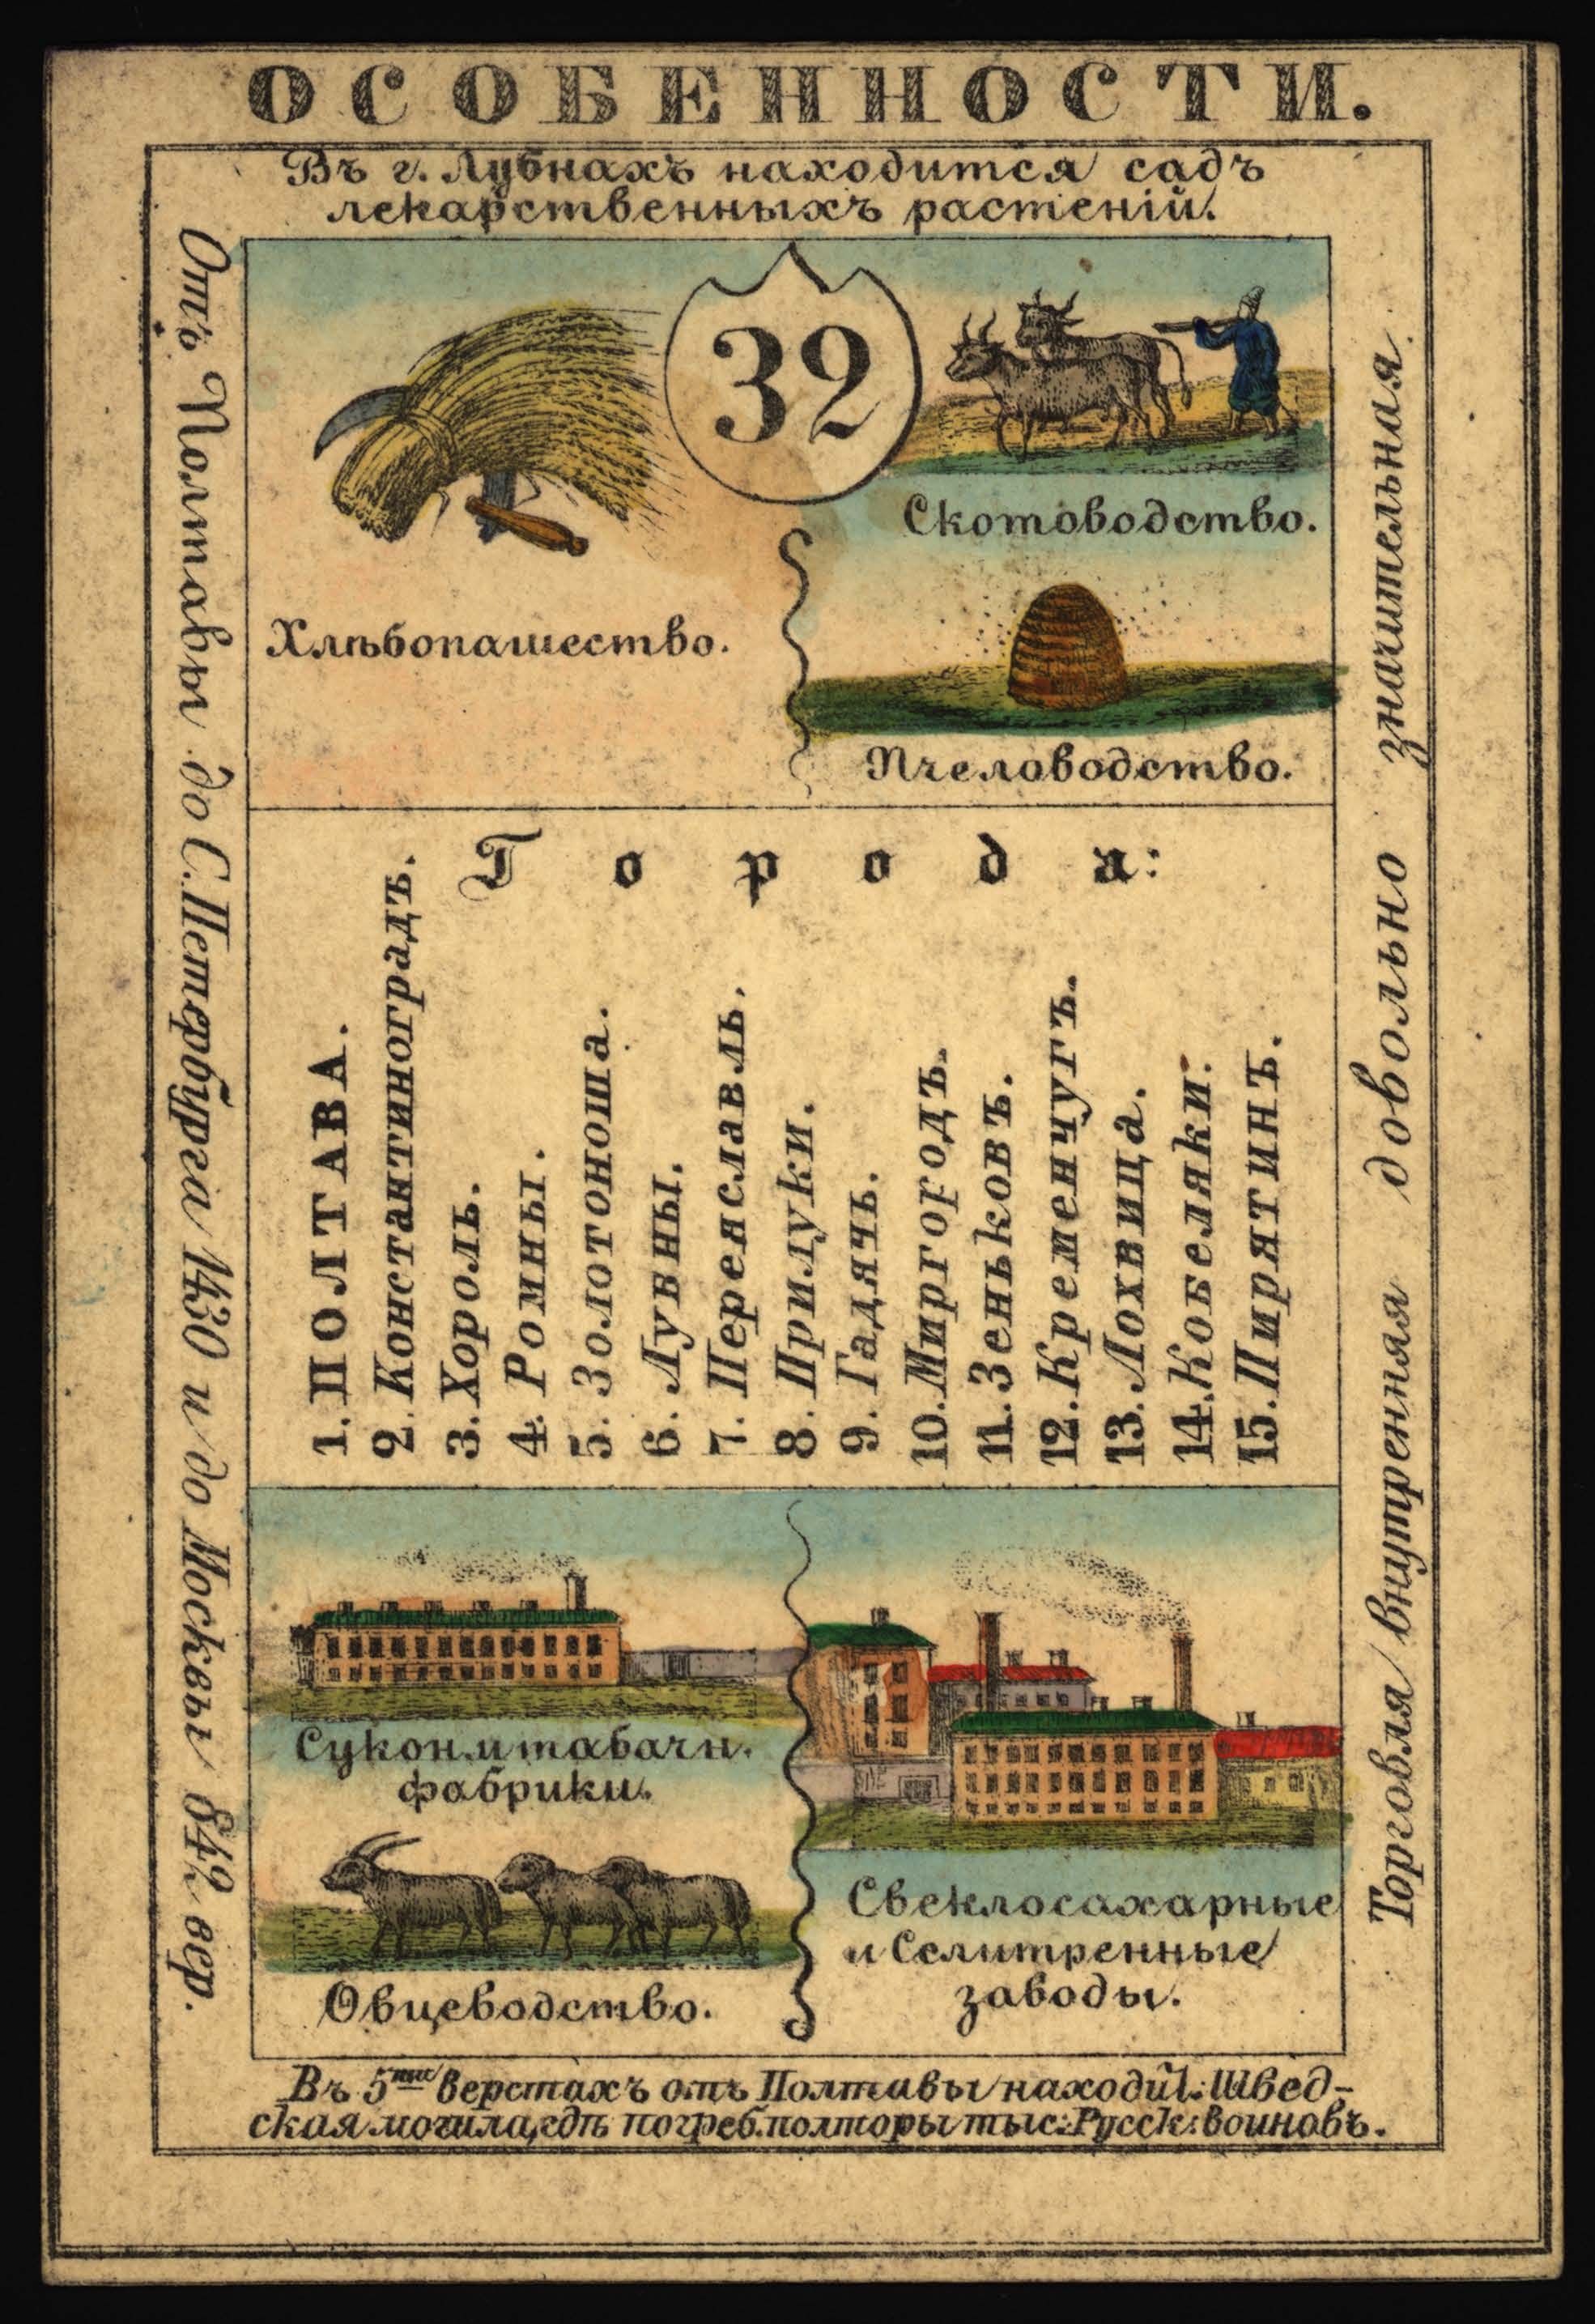 ОСОБЕННОСТИ.
Въ г. Лубнахъ находится садъ
лекарственныхъ растеній.
Отъ Полтавы до С.Петербурга 1430 и до Москвы 842 вер.
32
Хлѣбопашество.
Скотоводство.
Пчеловодство.
Города:
1. ПОЛТАВА.
2. Константиноградъ.
3. Хороль.
4. Ромны.
5. Золотоноша.
6. Лубны.
7. Переяславль.
8. Прилуки.
9. Гадячь.
10. Миргородъ.
11. Зеньковъ.
12. Кременчугъ.
13. Лохвица.
14. Кобеляки.
15. Пирятинъ.
Сукон. и табачн.
фабрики.
Овцеводство.
Свеклосахарные
и Селитренные
заводы.
Торговля внутренняя довольно значительная.
Въ 5ти верстахъ отъ Полтавы находит: Швед-
ская могила, гдѣ погреб. полторы тыс: Русск: воиновъ.